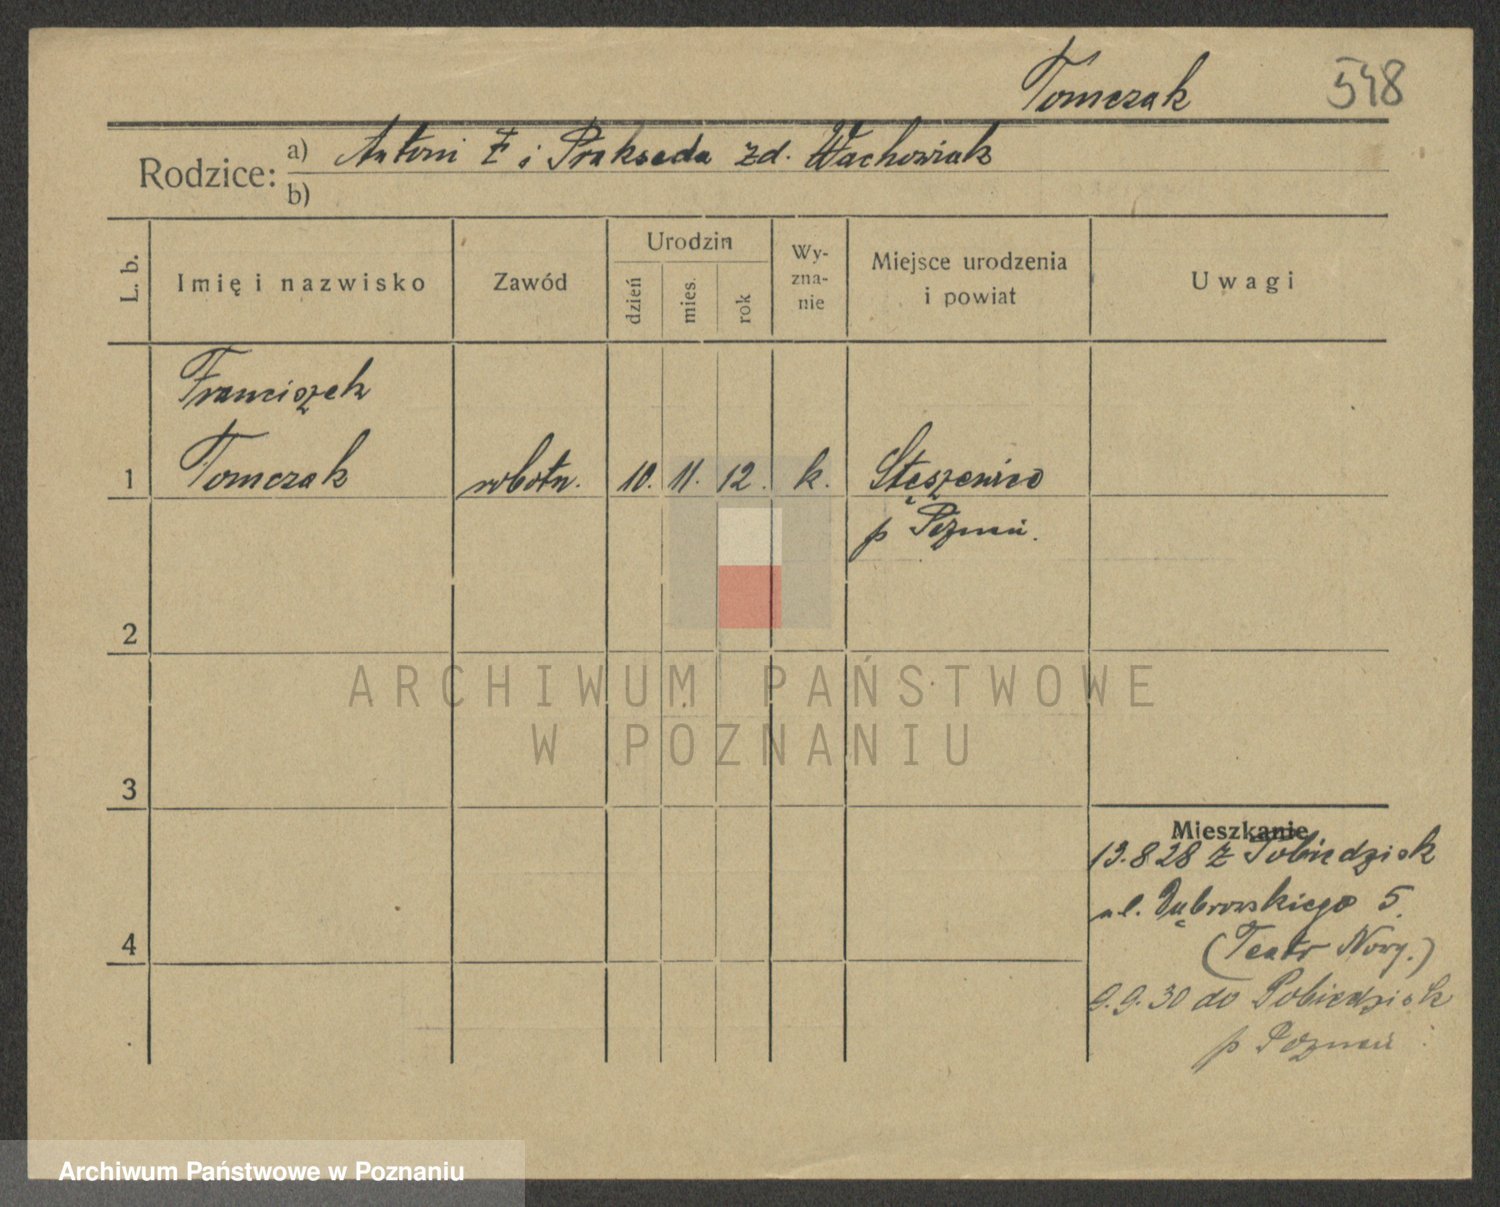 Tomczak
548
Rodzice: a) Antoni Ł i Prakseda zd. Wachowiak
b)
L. b.
Imię i nazwisko
Zawód
Urodzin
dzień
mies.
rok
Wy-
zna-
nie
Miejsce urodzenia
i powiat
Uwagi
Franciszek
1 Tomczak robotn. 10. 11. 12. k. Stęszewice
p Poznań.
2
ARCHIWUM PAŃSTWOWE
W POZNANIU
3
Mieszkanie
13.8 28 z Pobiedzisk
4
ul. Dąbrowskiego 5.
(Teatr Nowy.)
9.9.30 do Pobiedzisk
p Poznań
Archiwum Państwowe w Poznaniu